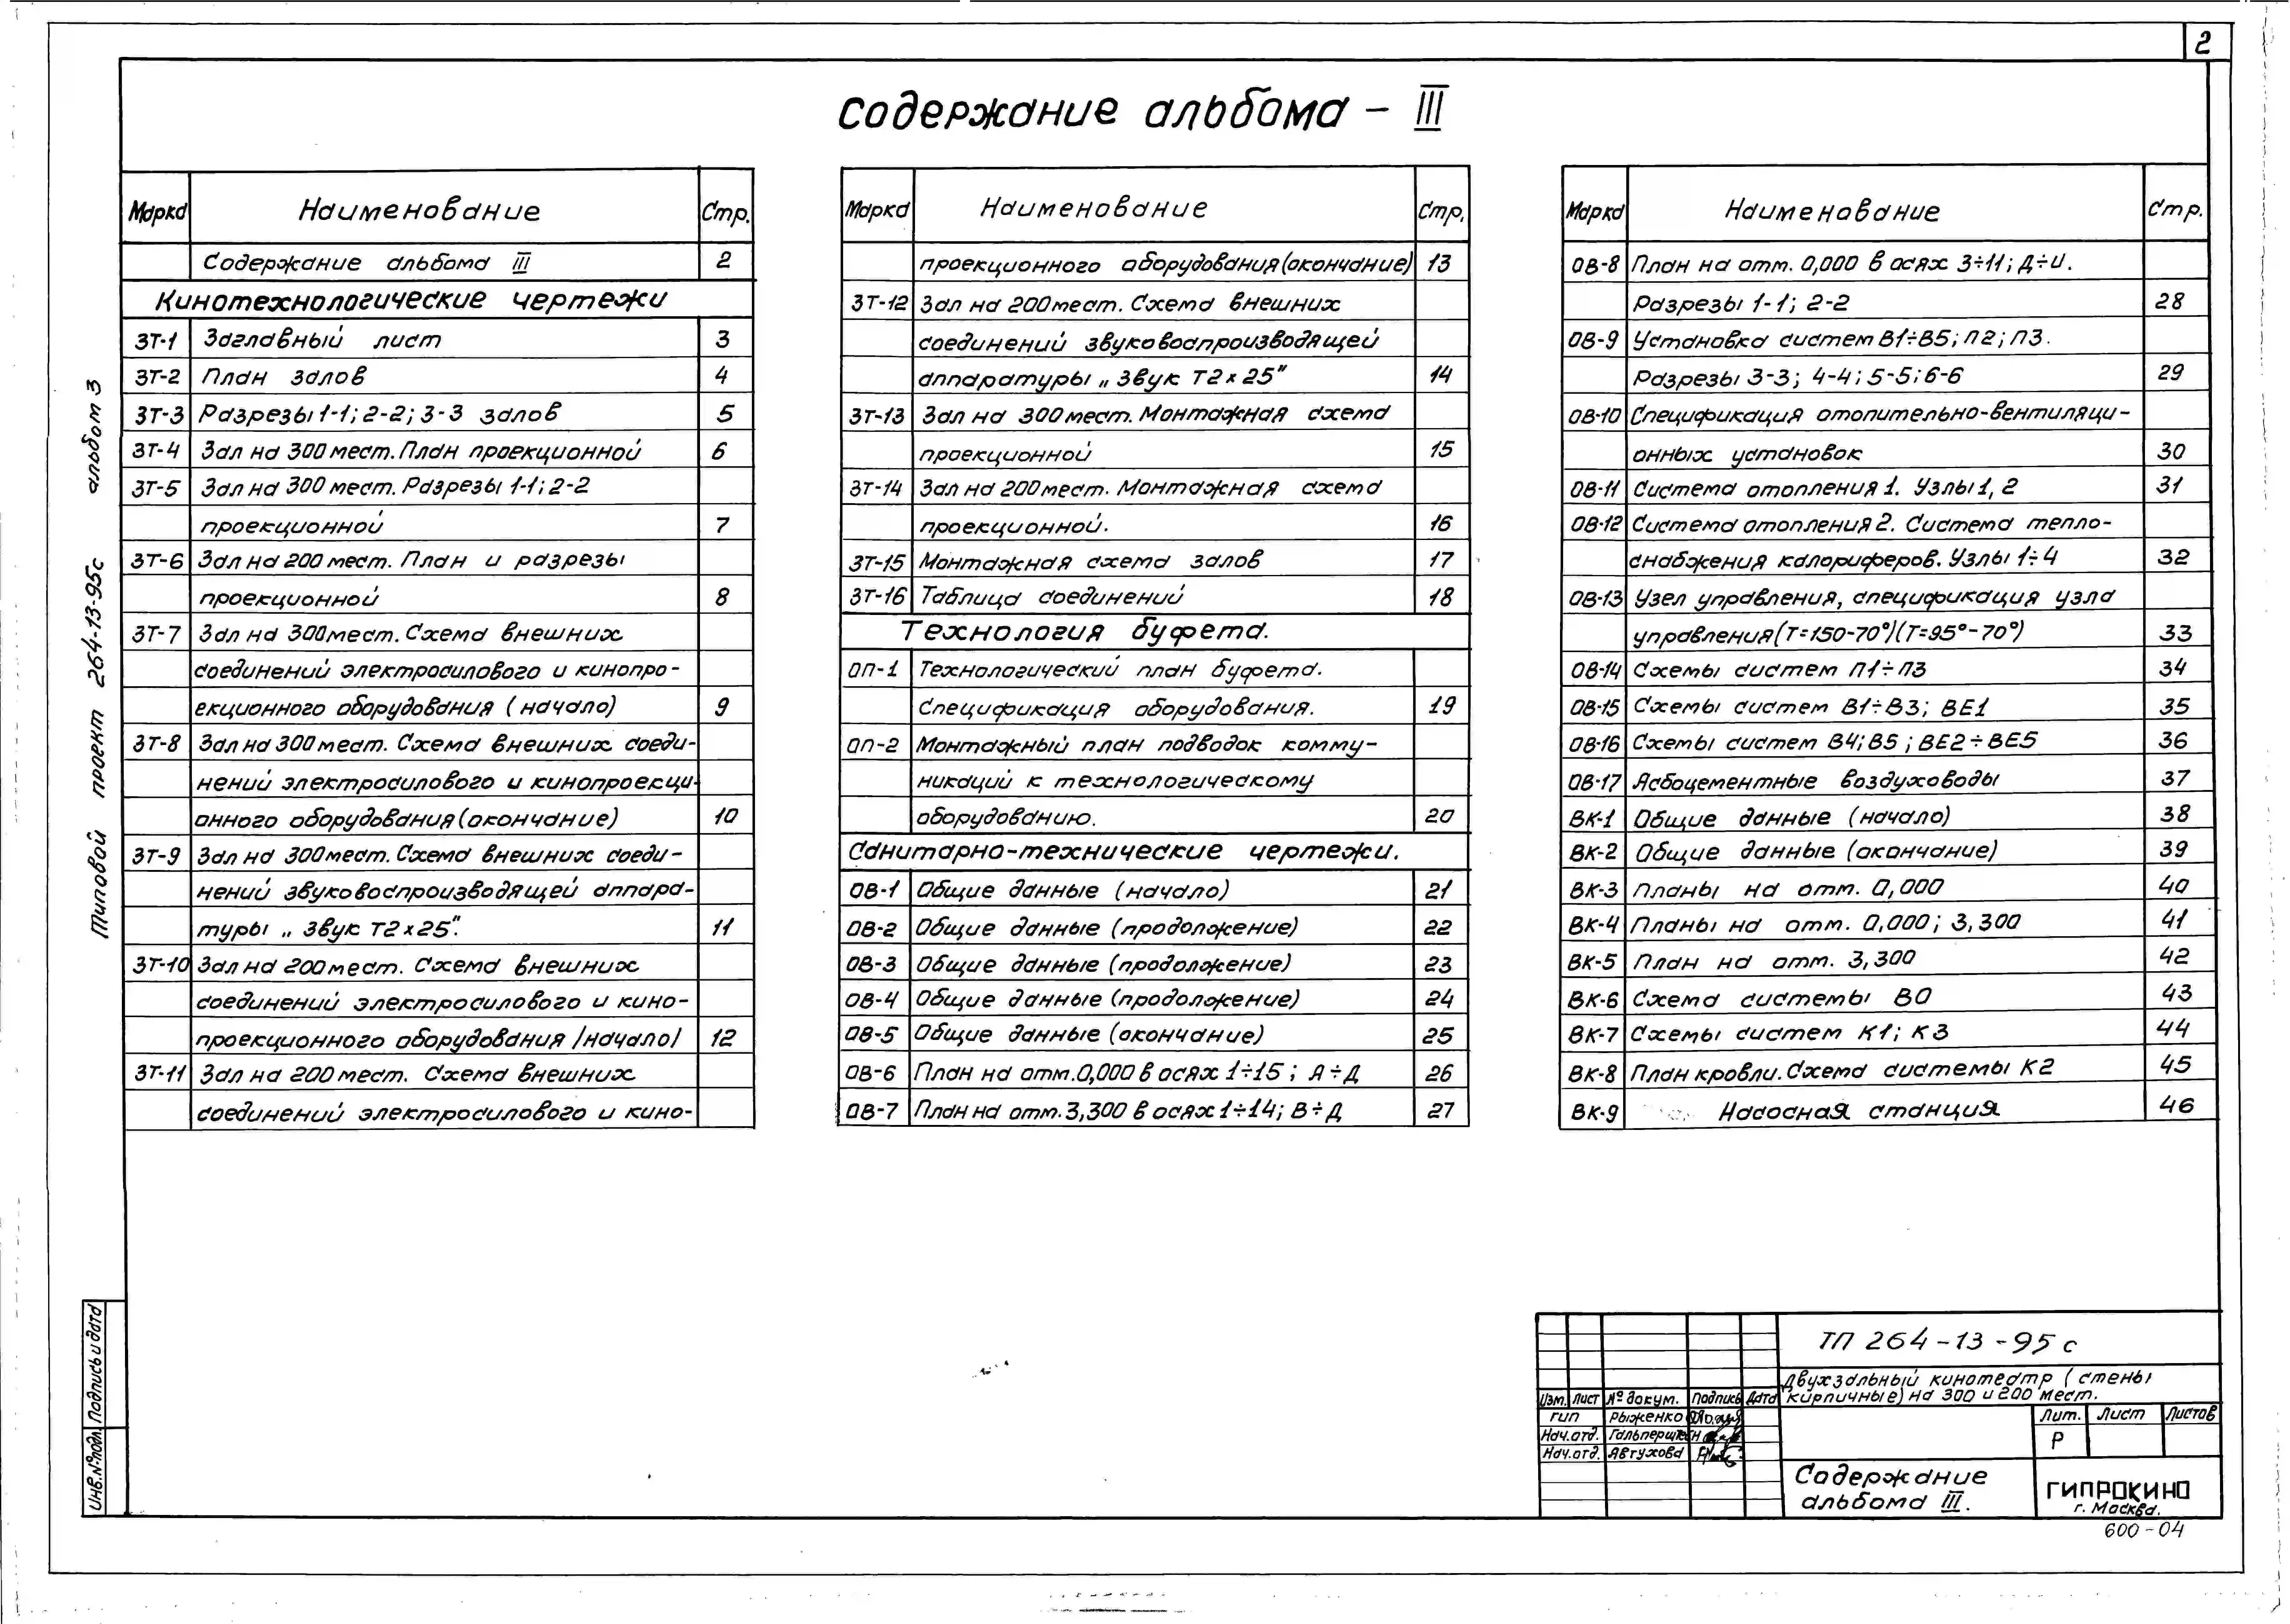 2
Содержание альбома - III
Марка Наименование Стр.
Содержание альбома III 2
Кинотехнологические чертежи
ЗТ-1 Заглавный лист 3
ЗТ-2 План залов 4
ЗТ-3 Разрезы 1-1; 2-2; 3-3 залов 5
ЗТ-4 Зал на 300 мест. План проекционной 6
ЗТ-5 Зал на 300 мест. Разрезы 1-1; 2-2
проекционной 7
ЗТ-6 Зал на 200 мест. План и разрезы
проекционной 8
ЗТ-7 Зал на 300мест. Схема внешних
соединений электросилового и кинопро-
екционного оборудования (начало) 9
ЗТ-8 Зал на 300 мест. Схема внешних соеди-
нений электросилового и кинопроекци-
онного оборудования (окончание) 10
ЗТ-9 Зал на 300мест. Схема внешних соеди-
нений звуковоспроизводящей аппара-
туры „ Звук Т2х25". 11
ЗТ-10 Зал на 200 мест. Схема внешних
соединений электросилового и кино-
проекционного оборудования /начало/ 12
ЗТ-11 Зал на 200 мест. Схема внешних
соединений электросилового и кино-
Марка Наименование Стр.
проекционного оборудования (окончание) 13
ЗТ-12 Зал на 200мест. Схема внешних
соединений звуковоспроизводящей
аппаратуры „ Звук Т2х25" 14
ЗТ-13 Зал на 300 мест. Монтажная схема
проекционной 15
ЗТ-14 Зал на 200мест. Монтажная схема
проекционной. 16
ЗТ-15 Монтажная схема залов 17
ЗТ-16 Таблица соединений 18
Технология буфета.
ОП-1 Технологический план буфета.
Спецификация оборудования. 19
ОП-2 Монтажный план подводок комму-
никаций к технологическому
оборудованию. 20
Санитарно-технические чертежи.
ОВ-1 Общие данные (начало) 21
ОВ-2 Общие данные (продолжение) 22
ОВ-3 Общие данные (продолжение) 23
ОВ-4 Общие данные (продолжение) 24
ОВ-5 Общие данные (окончание) 25
ОВ-6 План на отм.0,000 в осях 1÷15 ; А÷Д 26
ОВ-7 План на отм. 3,300 в осях 1÷14; В÷Д 27
Марка Наименование Стр.
ОВ-8 План на отм. 0,000 в осях 3÷11; Д÷И.
Разрезы 1-1; 2-2 28
ОВ-9 Установка систем В1÷В5; П2; П3.
Разрезы 3-3; 4-4; 5-5; 6-6 29
ОВ-10 Спецификация отопительно-вентиляци-
онных установок 30
ОВ-11 Система отопления 1. Узлы 1, 2 31
ОВ-12 Система отопления 2. Система тепло-
снабжения калориферов. Узлы 1÷4 32
ОВ-13 Узел управления, спецификация узла
управления(Т=150-70°)(Т=95°-70°) 33
ОВ-14 Схемы систем П1÷П3 34
ОВ-15 Схемы систем В1÷В3; ВЕ1 35
ОВ-16 Схемы систем В4; В5 ; ВЕ2÷ВЕ5 36
ОВ-17 Асбоцементные воздуховоды 37
ВК-1 Общие данные (начало) 38
ВК-2 Общие данные (окончание) 39
ВК-3 Планы на отм. 0,000 40
ВК-4 Планы на отм. 0,000; 3,300 41
ВК-5 План на отм. 3,300 42
ВК-6 Схема системы ВО 43
ВК-7 Схемы систем К1; К3 44
ВК-8 План кровли. Схема системы К2 45
ВК-9 Насосная станция 46
Типовой проект 264-13-95с альбом 3
Инв.№подл. Подпись и дата
ТП 264-13-95 с
Двухзальный кинотеатр (стены
кирпичные) на 300 и 200 мест.
Изм. Лист № докум. Подпись Дата
ГИП Рыженко
Нач.отд. Гальперштейн
Нач.отд. Автухова
Лит. Лист Листов
Р
Содержание
альбома III.
ГИПРОКИНО
г. Москва.
600-04